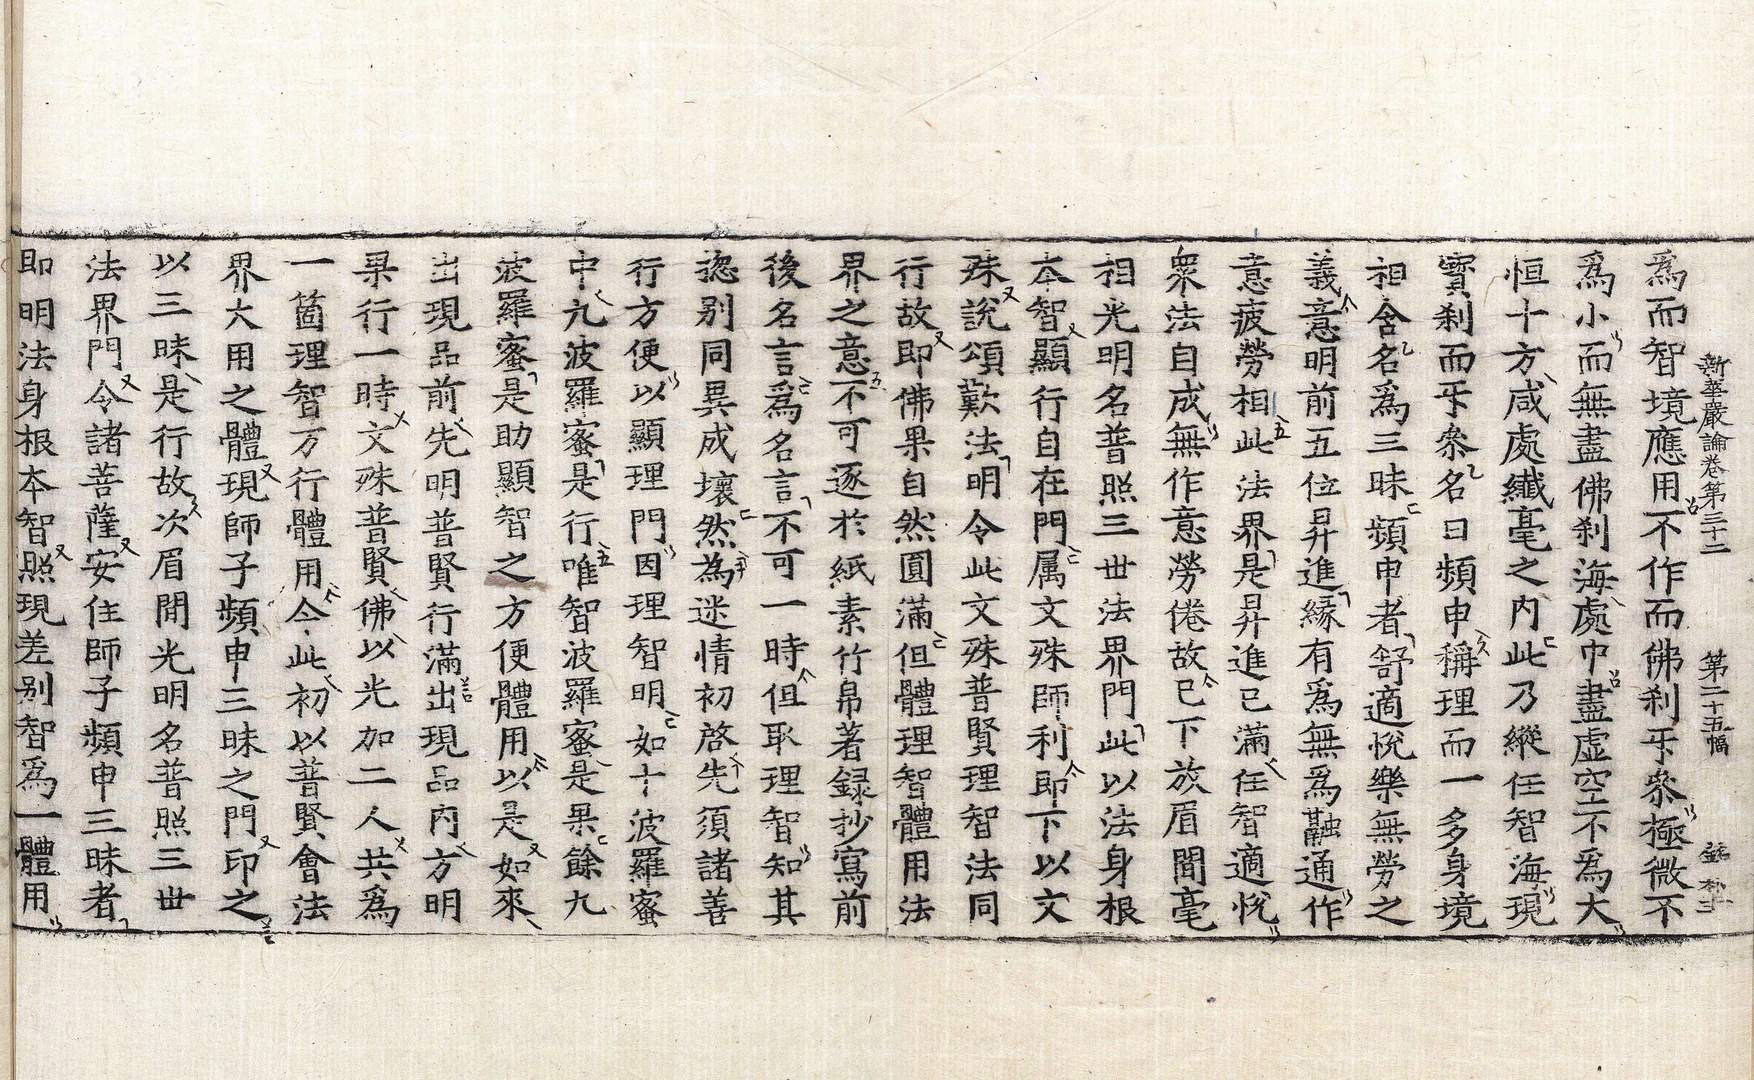 新華嚴論卷第三十二 第二十五幅
爲而智境應用不作而佛刹乎叅極微不
爲小而無盡佛刹海處中盡虛空不爲大
恒十方咸處纖毫之內此乃縱任智海現
寶刹而乎叅名曰頻申稱理而一多身境
相含名爲三昧頻申者舒適恱樂無勞之
義意明前五位昇進緣有爲無爲融通作
意疲勞相此法界是昇進已滿任智適恱
衆法自成無作意勞倦故已下放眉間毫
相光明名普照三世法界門此以法身根
本智顯行自在門属文殊師利即下以文
殊說頌歎法明令此文殊普賢理智法同
行故即佛果自然圓滿但體理智體用法
界之意不可逐於紙素竹帛著録抄寫前
後名言爲名言不可一時但取理智知其
揔别同異成壞然為迷情初啓先須諸善
行方便以顯理門因理智明如十波羅蜜
中九波羅蜜是行唯智波羅蜜是果餘九
波羅蜜是助顯智之方便體用以是如來
出現品前先明普賢行滿出現品内方明
果行一時文殊普賢佛以光加二人共爲
一箇理智万行體用今此初以普賢會法
界大用之體現師子頻申三昧之門印之
以三昧是行故次眉間光明名普照三世
法界門令諸菩薩安住師子頻申三昧者
即明法身根本智照現差别智爲一體用